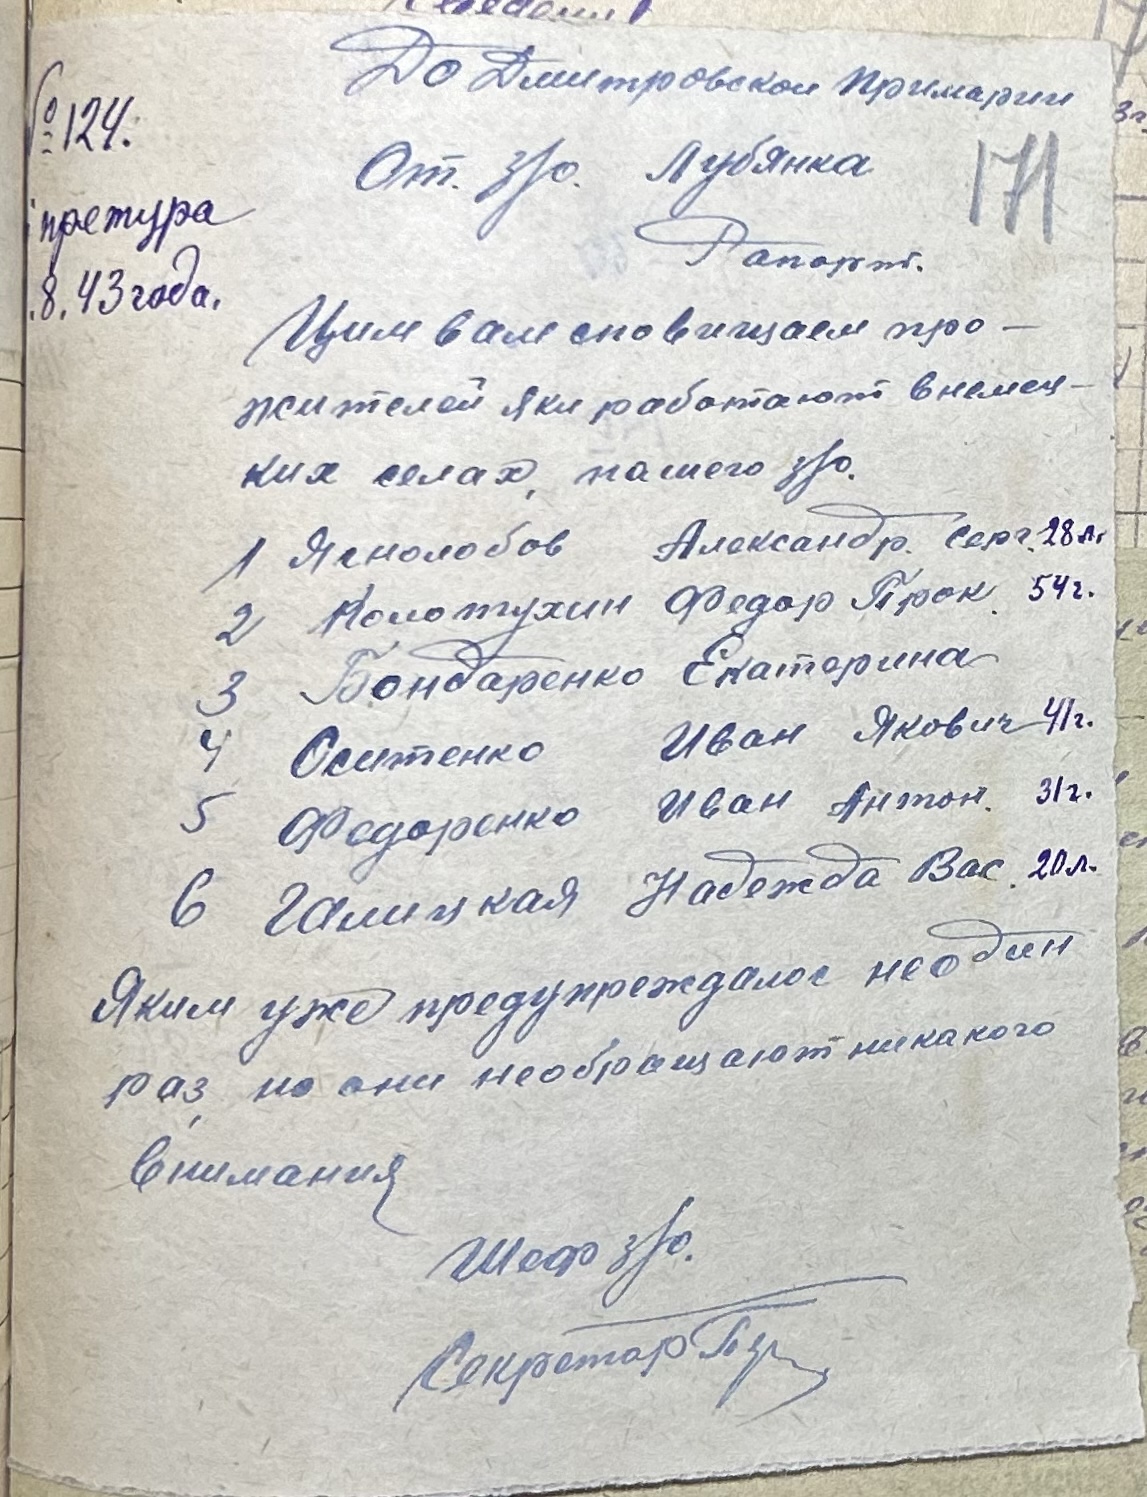 До Дмитровской Примарии
№ 124.
От. з/о. Лубянка
171
претура
Рапорт.
.8.43 года.
Цим вам сповищаем про
жителей яки работают внемец-
ких селах, нашего з/о.
1 Яснолобов Александр. Серг. 28 л.
2 Колотухин Федор Прок. 54 г.
3 Бондаренко Екатерина
4 Оситенко Иван Якович 41 г.
5 Федоренко Иван Антон. 31 г.
6 Галицкая Надежда Вас. 20 л.
Яким уже предупреждалос неодин
раз, но они необращают никакого
внимания
Шеф з/о.
Секретар